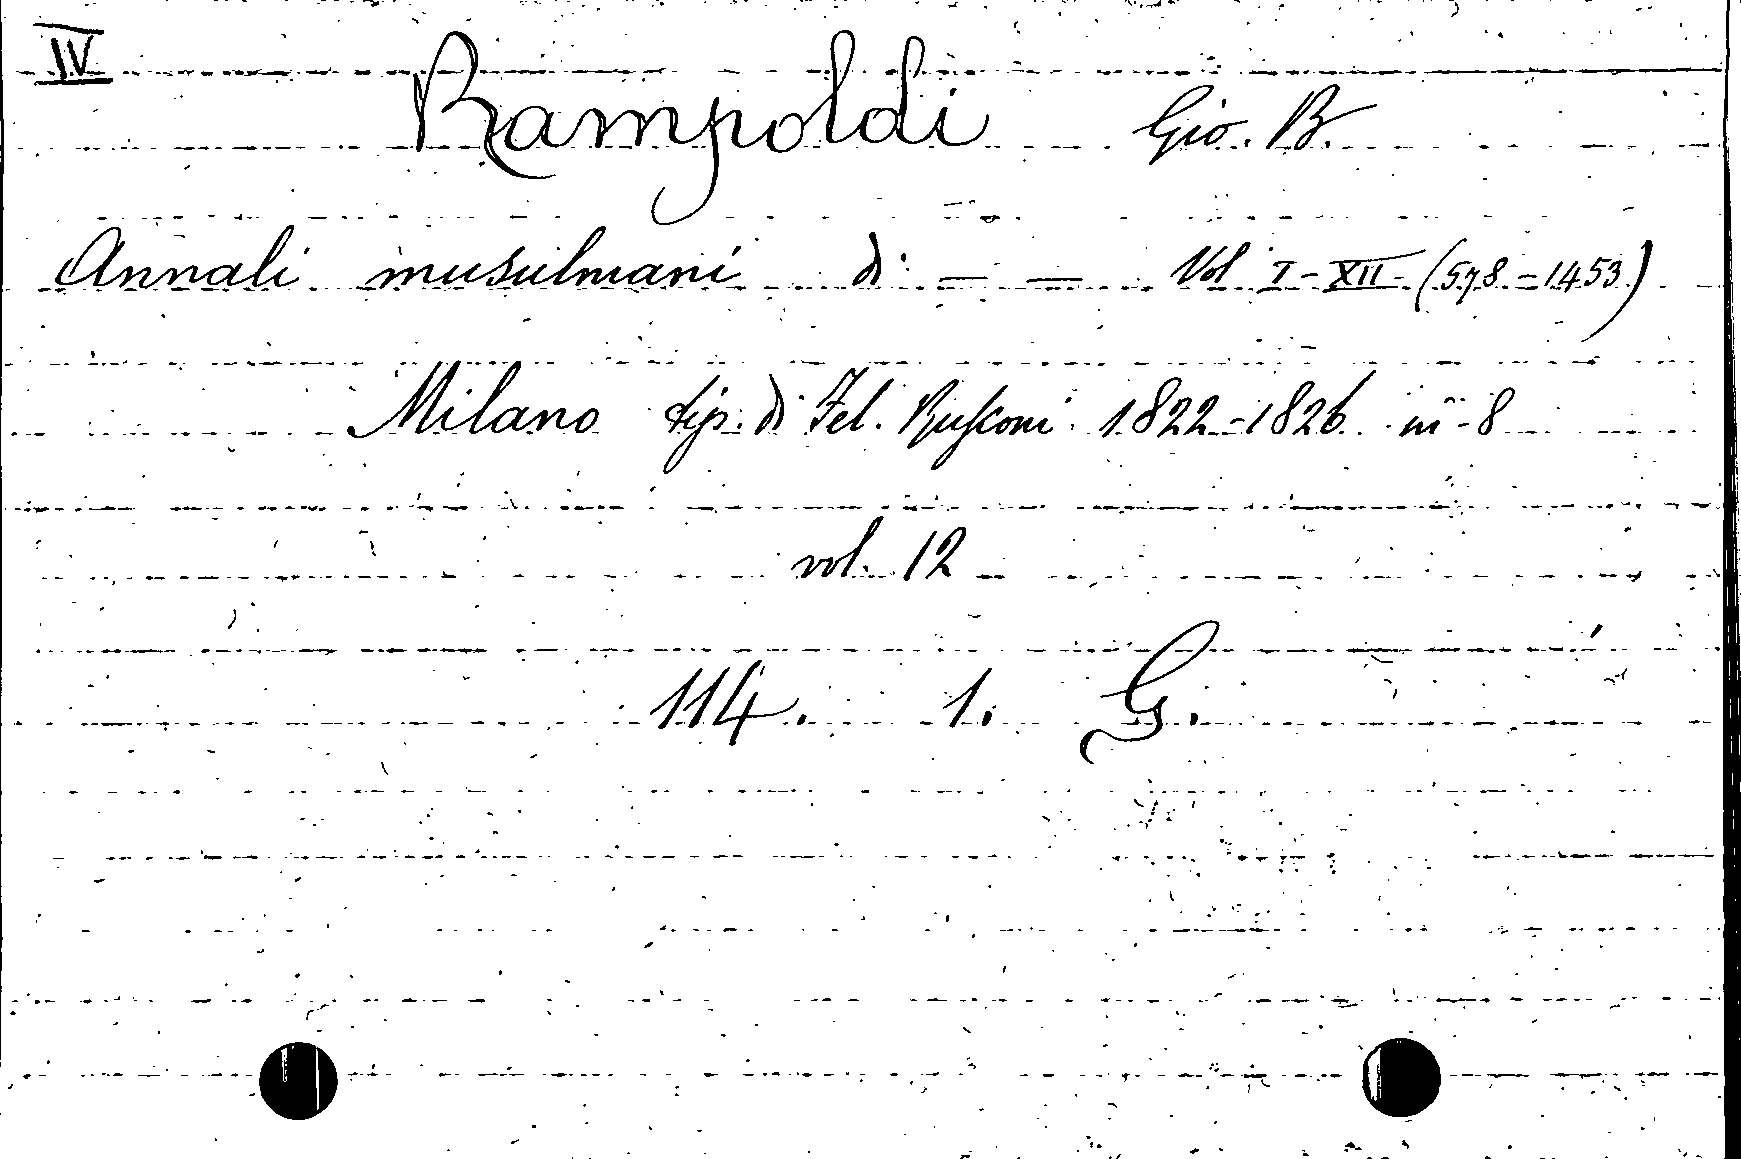 IV
Rampoldi Gio. B.
Annali musulmani di — — Vol I-XII (578-1453)
Milano tip. di Fel. Rusconi 1822-1826 in-8
vol. 12
114. 1. G.